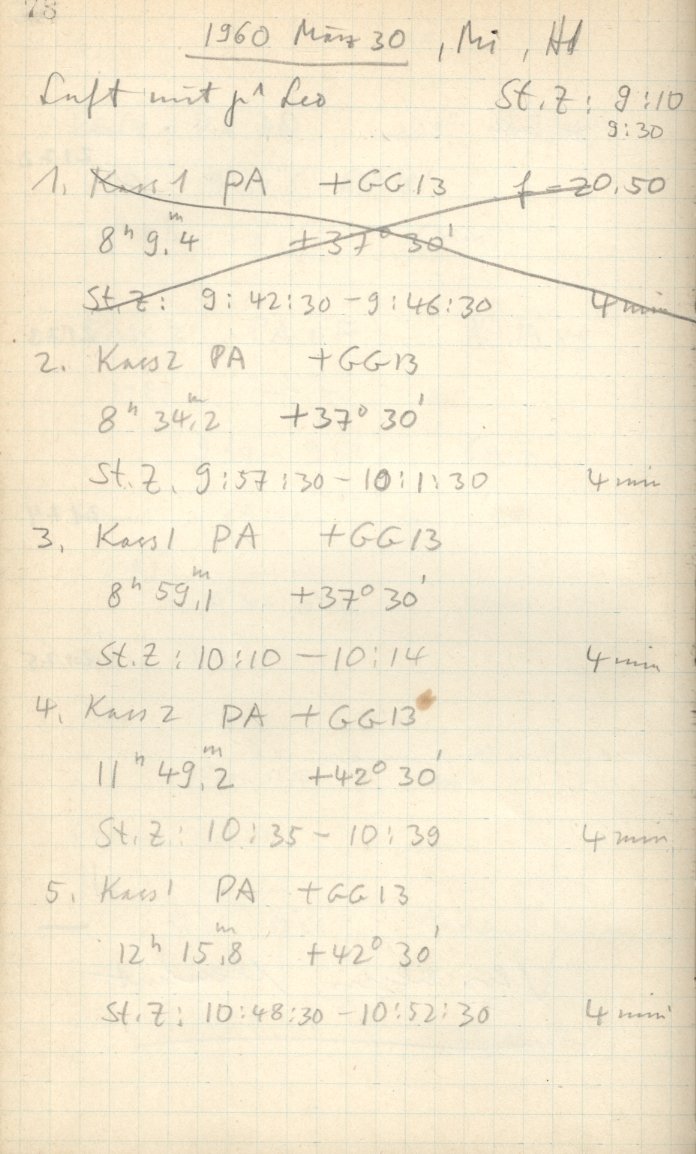 78
1960 März 30, Mi, Hd
Luft mit γ¹ Leo St.Z: 9:10
9:30
1. Kass 1 PA +GG13 f = 20,50
8ʰ 9ᵐ,4 +37° 30'
St.Z: 9:42:30 - 9:46:30 4 min
2. Kass 2 PA +GG13
8ʰ 34ᵐ,2 +37° 30'
St.Z. 9:57:30 - 10:1:30 4 min
3. Kass 1 PA +GG13
8ʰ 59ᵐ,1 +37° 30'
St.Z: 10:10 - 10:14 4 min
4. Kass 2 PA +GG13
11ʰ 49ᵐ,2 +42° 30'
St.Z: 10:35 - 10:39 4 min
5. Kass 1 PA +GG13
12ʰ 15ᵐ,8 +42° 30'
St.Z: 10:48:30 - 10:52:30 4 min